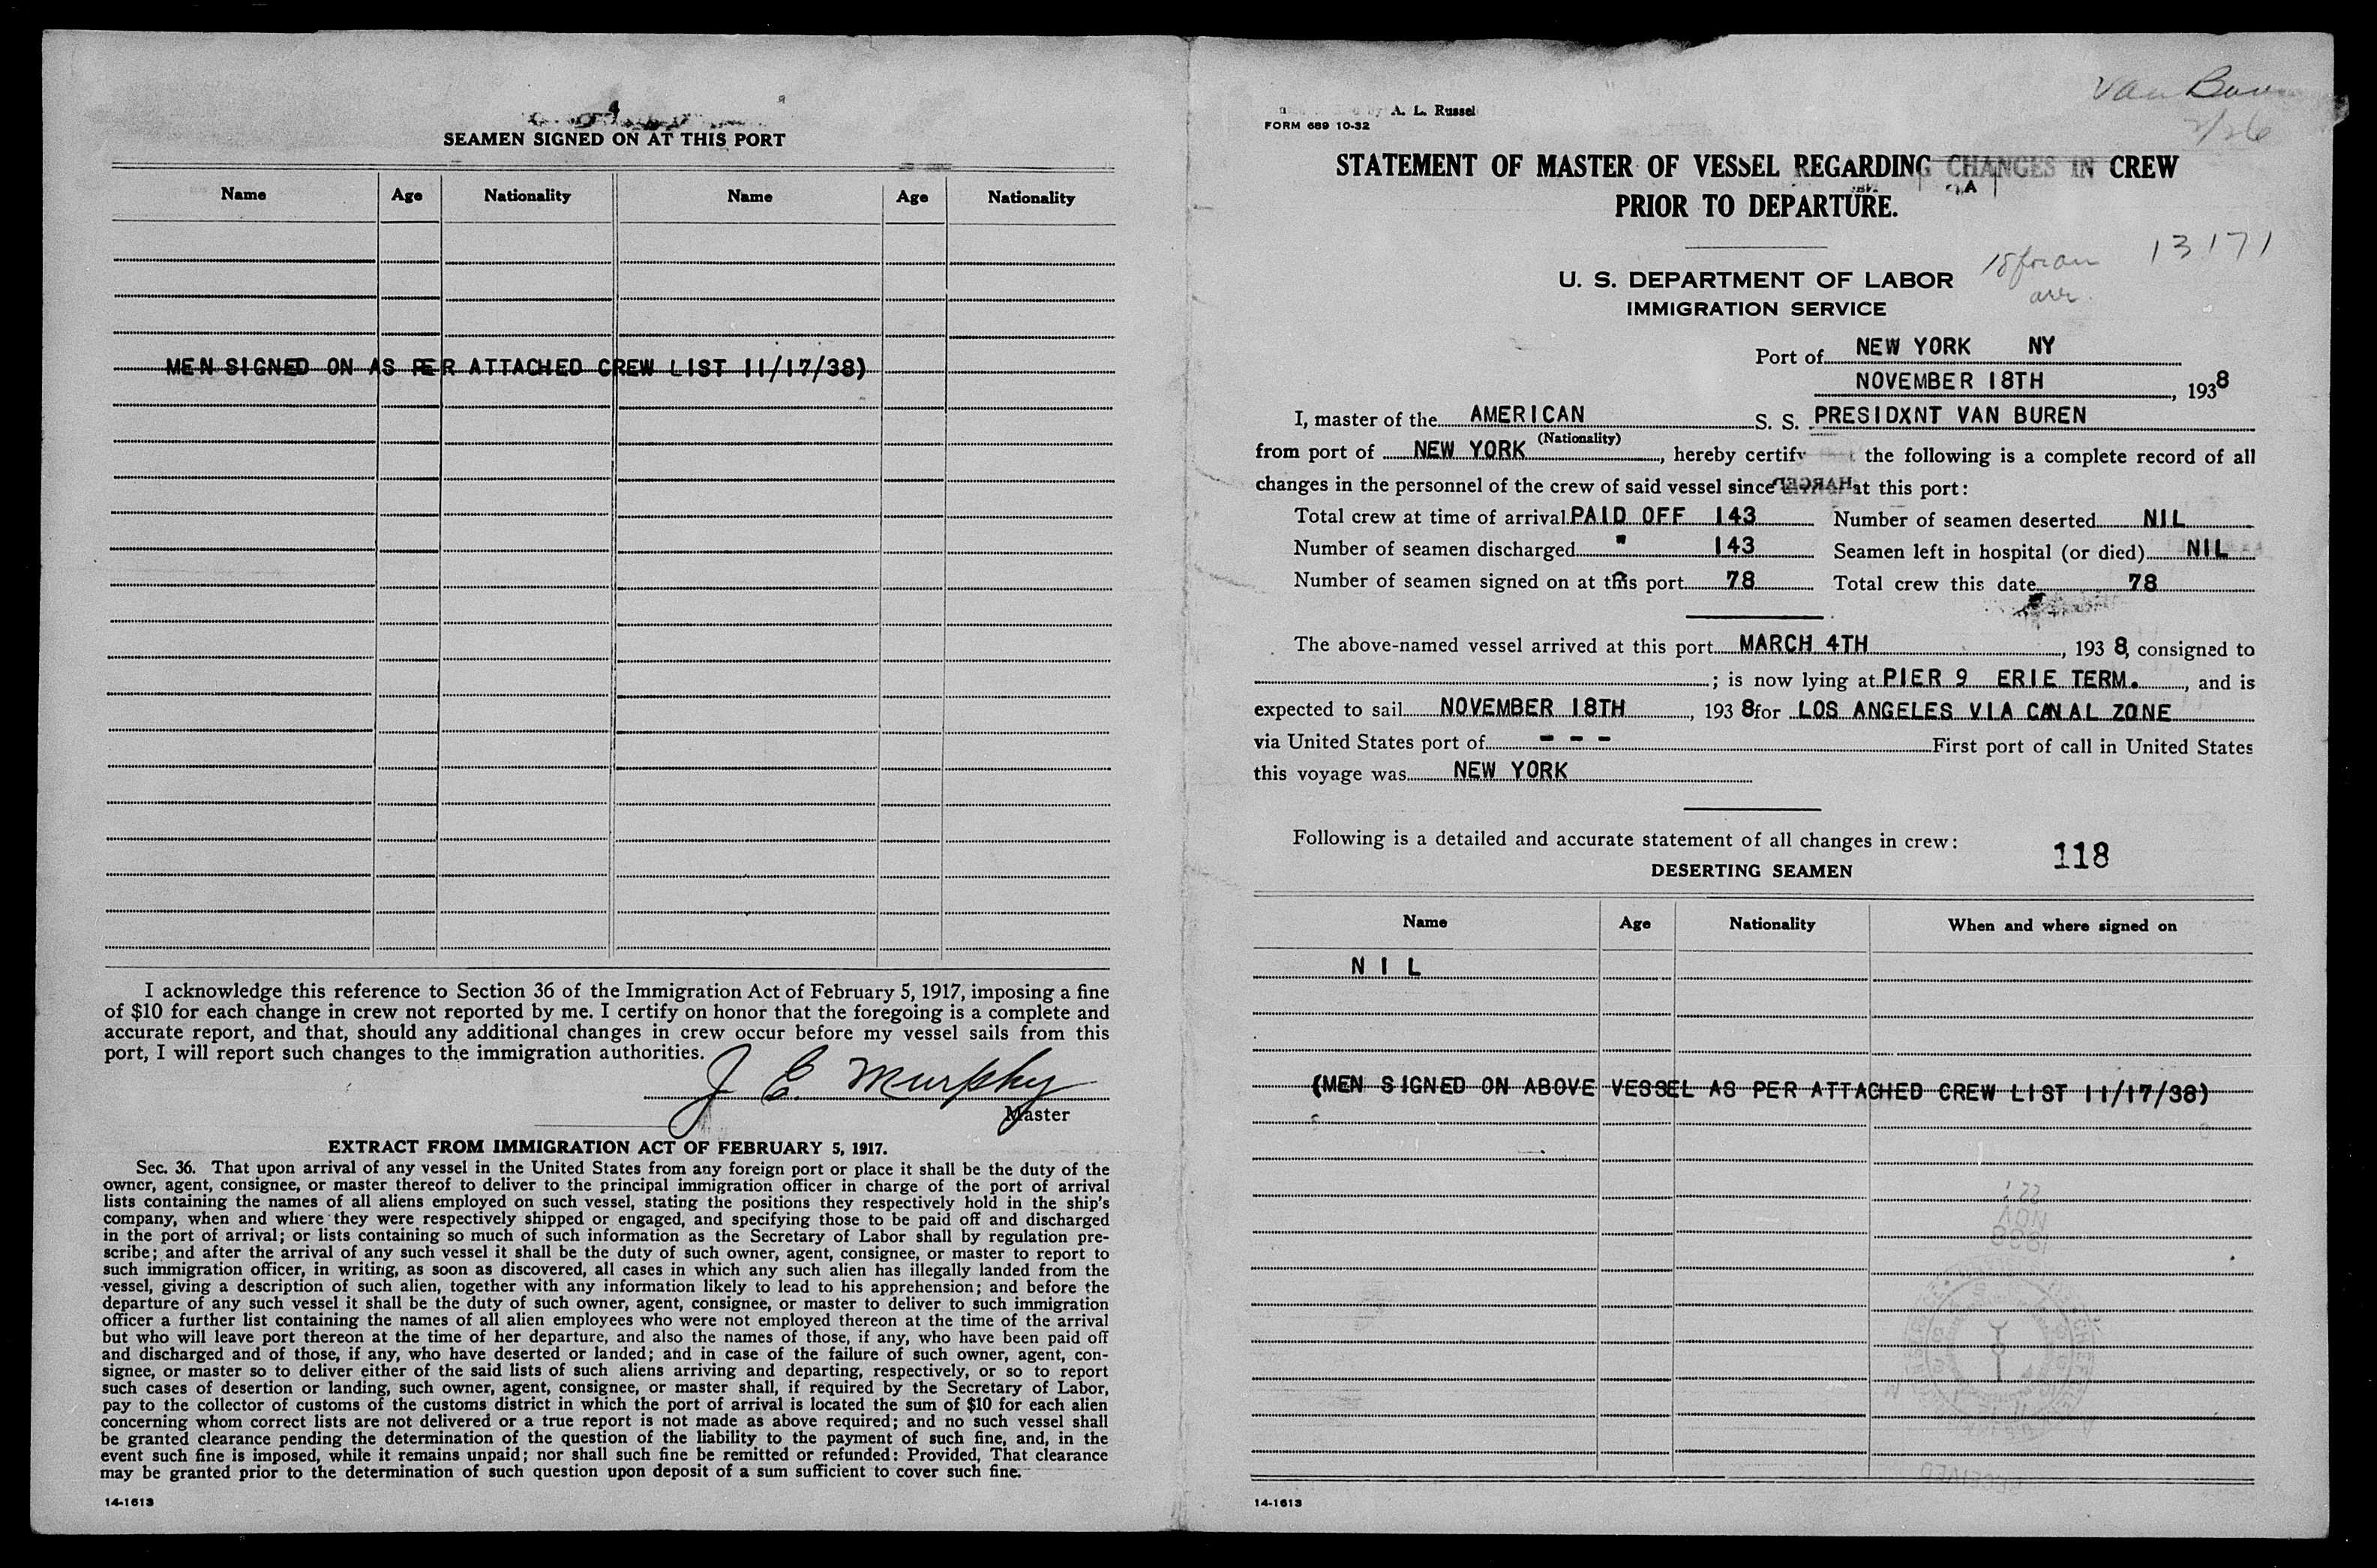 SEAMEN SIGNED ON AT THIS PORT
Name Age Nationality Name Age Nationality
MEN SIGNED ON AS PER ATTACHED CREW LIST 11/17/38)
I acknowledge this reference to Section 36 of the Immigration Act of February 5, 1917, imposing a fine
of $10 for each change in crew not reported by me. I certify on honor that the foregoing is a complete and
accurate report, and that, should any additional changes in crew occur before my vessel sails from this
port, I will report such changes to the immigration authorities.
J E. Murphy
Master
EXTRACT FROM IMMIGRATION ACT OF FEBRUARY 5, 1917.
Sec. 36. That upon arrival of any vessel in the United States from any foreign port or place it shall be the duty of the
owner, agent, consignee, or master thereof to deliver to the principal immigration officer in charge of the port of arrival
lists containing the names of all aliens employed on such vessel, stating the positions they respectively hold in the ship's
company, when and where they were respectively shipped or engaged, and specifying those to be paid off and discharged
in the port of arrival; or lists containing so much of such information as the Secretary of Labor shall by regulation pre-
scribe; and after the arrival of any such vessel it shall be the duty of such owner, agent, consignee, or master to report to
such immigration officer, in writing, as soon as discovered, all cases in which any such alien has illegally landed from the
vessel, giving a description of such alien, together with any information likely to lead to his apprehension; and before the
departure of any such vessel it shall be the duty of such owner, agent, consignee, or master to deliver to such immigration
officer a further list containing the names of all alien employees who were not employed thereon at the time of the arrival
but who will leave port thereon at the time of her departure, and also the names of those, if any, who have been paid off
and discharged and of those, if any, who have deserted or landed; and in case of the failure of such owner, agent, con-
signee, or master so to deliver either of the said lists of such aliens arriving and departing, respectively, or so to report
such cases of desertion or landing, such owner, agent, consignee, or master shall, if required by the Secretary of Labor,
pay to the collector of customs of the customs district in which the port of arrival is located the sum of $10 for each alien
concerning whom correct lists are not delivered or a true report is not made as above required; and no such vessel shall
be granted clearance pending the determination of the question of the liability to the payment of such fine, and, in the
event such fine is imposed, while it remains unpaid; nor shall such fine be remitted or refunded: Provided, That clearance
may be granted prior to the determination of such question upon deposit of a sum sufficient to cover such fine.
14-1613
Van
A. L. Russel
FORM 689 10-32
STATEMENT OF MASTER OF VESSEL REGARDING CHANGES IN CREW
PRIOR TO DEPARTURE.
13171
U. S. DEPARTMENT OF LABOR
IMMIGRATION SERVICE
Port of NEW YORK NY
NOVEMBER 18TH, 1938
I, master of the AMERICAN S. S. PRESIDXNT VAN BUREN
(Nationality)
from port of NEW YORK, hereby certify that the following is a complete record of all
changes in the personnel of the crew of said vessel since at this port:
Total crew at time of arrival PAID OFF 143 Number of seamen deserted NIL
Number of seamen discharged " 143 Seamen left in hospital (or died) NIL
Number of seamen signed on at this port 78 Total crew this date 78
The above-named vessel arrived at this port MARCH 4TH, 193 8, consigned to
; is now lying at PIER 9 ERIE TERM., and is
expected to sail NOVEMBER 18TH, 193 8 for LOS ANGELES VIA CANAL ZONE
via United States port of - - - First port of call in United States
this voyage was NEW YORK
Following is a detailed and accurate statement of all changes in crew:
118
DESERTING SEAMEN
Name Age Nationality When and where signed on
N I L
(MEN SIGNED ON ABOVE VESSEL AS PER ATTACHED CREW LIST 11/17/38)
14-1613